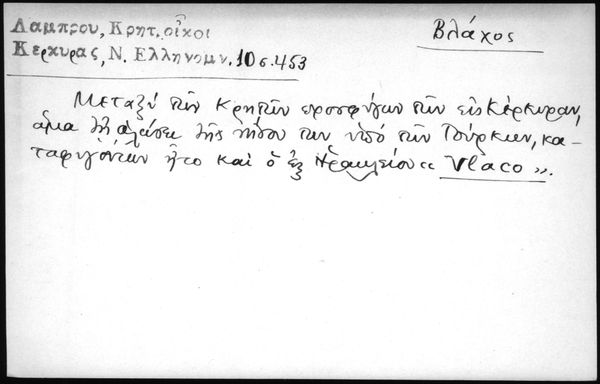 Λαμπρου, Κρητ. οἶκοι
Κερκυρας, Ν. Ελληνομν. 10 σ. 453
Βλάχος
Μεταξύ τῶν Κρητῶν προσφύγων τῶν εἰς Κέρκυραν,
ἅμα τῇ ἁλώσει τῆς νήσου των ὑπό τῶν Τούρκων, κα-
ταφυγόντων ἦτο καί ὁ ἐξ Ἡρακλείου « Vlaco ».